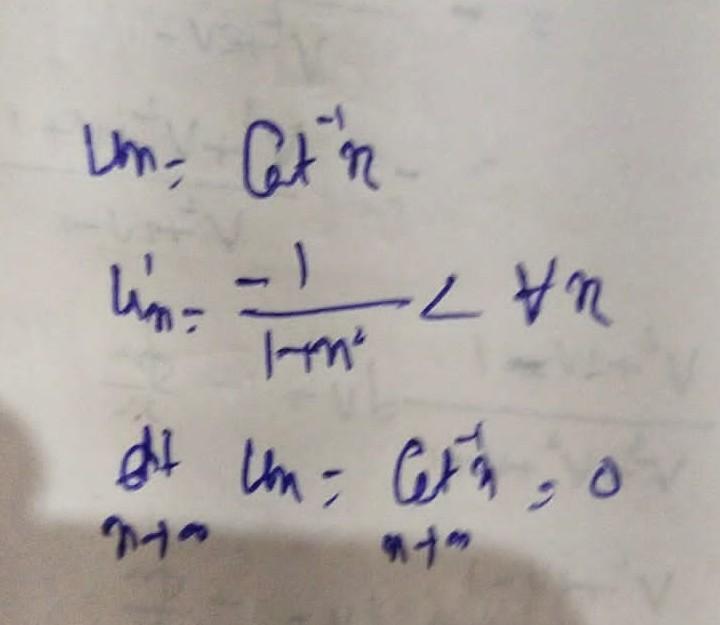 Un = Cot⁻¹n
U'n = -1/1+n² < ∀n
Lt Un = Cot⁻¹n = 0
n→∞ n→∞